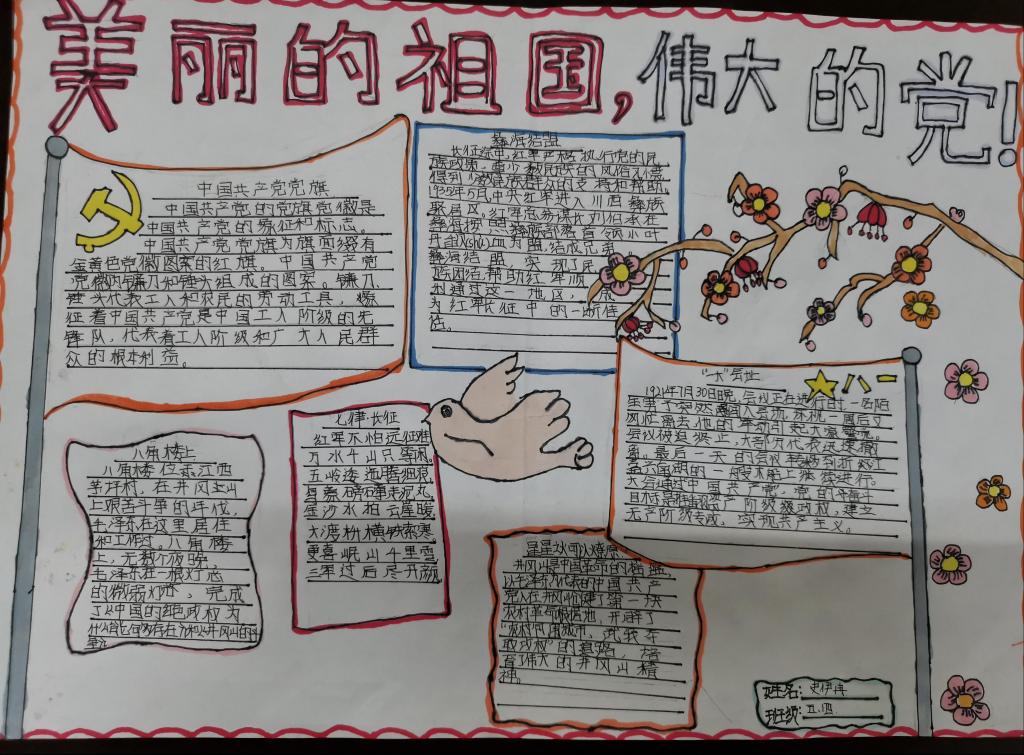 美丽的祖国,伟大的党!
中国共产党党旗
中国共产党的党旗党徽是
中国共产党的象征和标志。
中国共产党党旗为旗面缀有
金黄色党徽图案的红旗。中国共产党
党徽为镰刀和锤头组成的图案。镰刀、
锤头代表工人和农民的劳动工具,象
征着中国共产党是中国工人阶级的先
锋队,代表着工人阶级和广大人民群
众的根本利益。
彝海结盟
长征途中,红军严格执行党的民
族政策,尊少数民族的风俗习惯
得到少数民族群众的支持和帮助。
1935年5月,中央红军进入川西彝族
聚居区。红军总参谋长刘伯承在
彝海按照彝族部落首领小叶
丹歃(shà)血为盟结成兄弟
彝海结盟实现了民
族团结帮助红军顺
利通过这一地区,成
为红军长征中的一断佳
话。
"一大"会址
1921年7月30日晚,会议正在进行时,一名陌
大会通过中国共产党,党的奋斗
无产阶级专政,实现共产主义。
七律·长征
红军不怕远征难
万水千山只等闲。
五岭逶迤腾细浪
乌蒙磅礴走泥丸
金沙水拍云崖暖
大渡桥横铁索寒
更喜岷山千里雪
三军过后尽开颜
八角楼上
八角楼位于江西
茅坪村,在井冈山
上艰苦斗争的年代,
毛泽东在这里居住
和工作过。八角楼
上,无数个夜晚,
毛泽东在一根灯芯
的微弱灯光,完成
了《中国的红色政权为
什么能够存在》和《井冈山的斗
争》
星星之火可以燎原
井冈山是中国革命的摇篮
以毛泽东为代表的中国共产
党人在井冈山创建了第一块
农村革命根据地,开辟了
"农村包围城市,武装夺
取政权"的道路,培
育了伟大的井冈山精
神。
姓名:史伊冉
班级:五.四